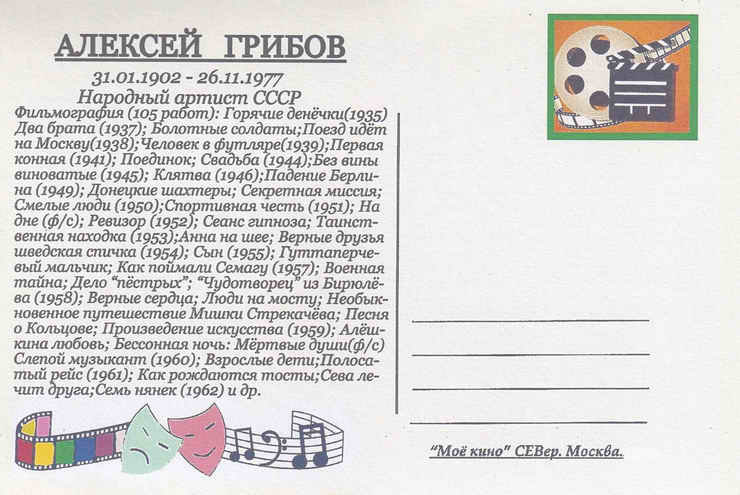 АЛЕКСЕЙ ГРИБОВ
31.01.1902 - 26.11.1977
Народный артист СССР
Фильмография (105 работ): Горячие денёчки(1935)
Два брата (1937); Болотные солдаты;Поезд идёт
на Москву(1938);Человек в футляре(1939);Первая
конная (1941); Поединок; Свадьба (1944);Без вины
виноватые (1945); Клятва (1946);Падение Берли-
на (1949); Донецкие шахтеры; Секретная миссия;
Смелые люди (1950);Спортивная честь (1951); На
дне (ф/с); Ревизор (1952); Сеанс гипноза; Таинст-
венная находка (1953);Анна на шее; Верные друзья
шведская спичка (1954); Сын (1955); Гуттаперче-
вый мальчик; Как поймали Семагу (1957); Военная
тайна; Дело "пёстрых"; "Чудотворец" из Бирюлё-
ва (1958); Верные сердца; Люди на мосту; Необык-
новенное путешествие Мишки Стрекачёва; Песня
о Кольцове; Произведение искусства (1959); Алёш-
кина любовь; Бессонная ночь: Мёртвые души(ф/с)
Слепой музыкант (1960); Взрослые дети;Полоса-
тый рейс (1961); Как рождаются тосты;Сева ле-
чит друга;Семь нянек (1962) и др.
"Моё кино" СЕВер. Москва.